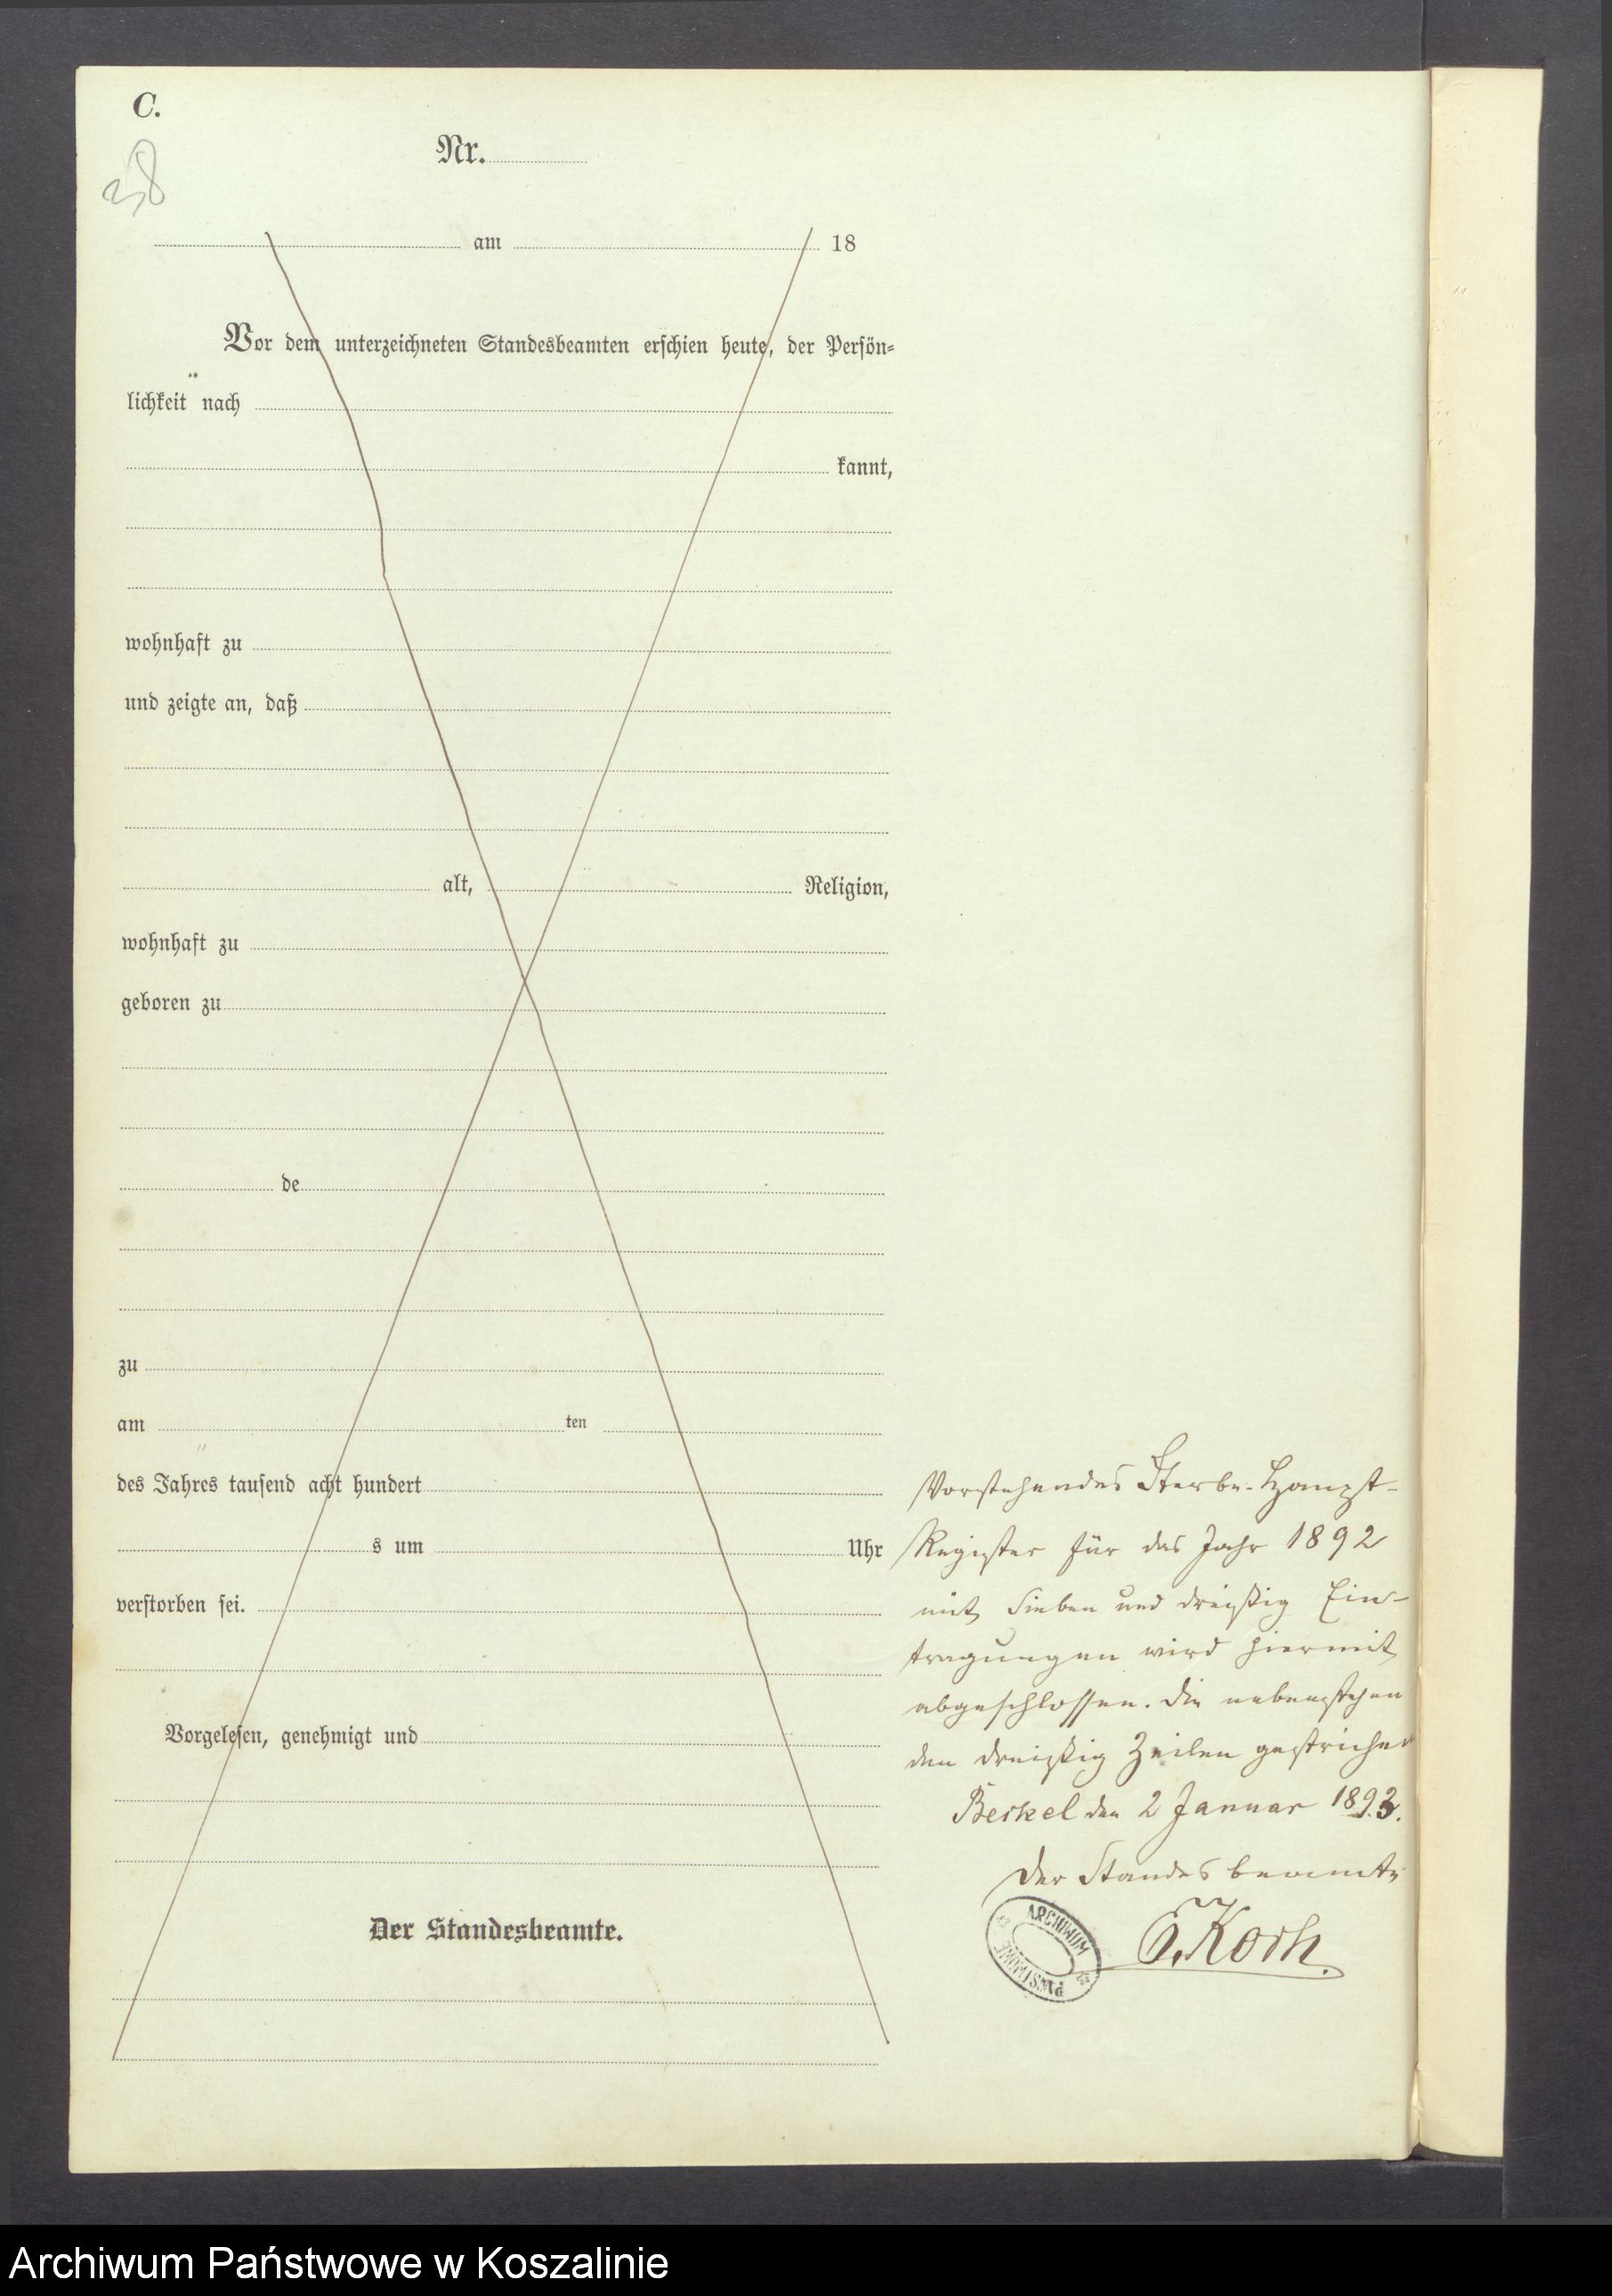 C.
38
Nr.
am 18
Vor dem unterzeichneten Standesbeamten erschien heute, der Persön-
lichkeit nach
kannt,
wohnhaft zu
und zeigte an, daß
alt, Religion,
wohnhaft zu
geboren zu
de
zu
am ten
des Jahres tausend acht hundert
s um Uhr
verstorben sei.
Vorgelesen, genehmigt und
Der Standesbeamte.
Vorstehendes Sterbe-Haupt-
Register für das Jahr 1892
mit Sieben und dreißig Ein-
tragungen wird hiermit
abgeschlossen. Die nebenstehen
den dreißig Zeilen gestrichen
Beskel den 2 Januar 1893.
Der Standesbeamte
ARCHIWUM PAŃSTWOWE
E. Koch.
Archiwum Państwowe w Koszalinie